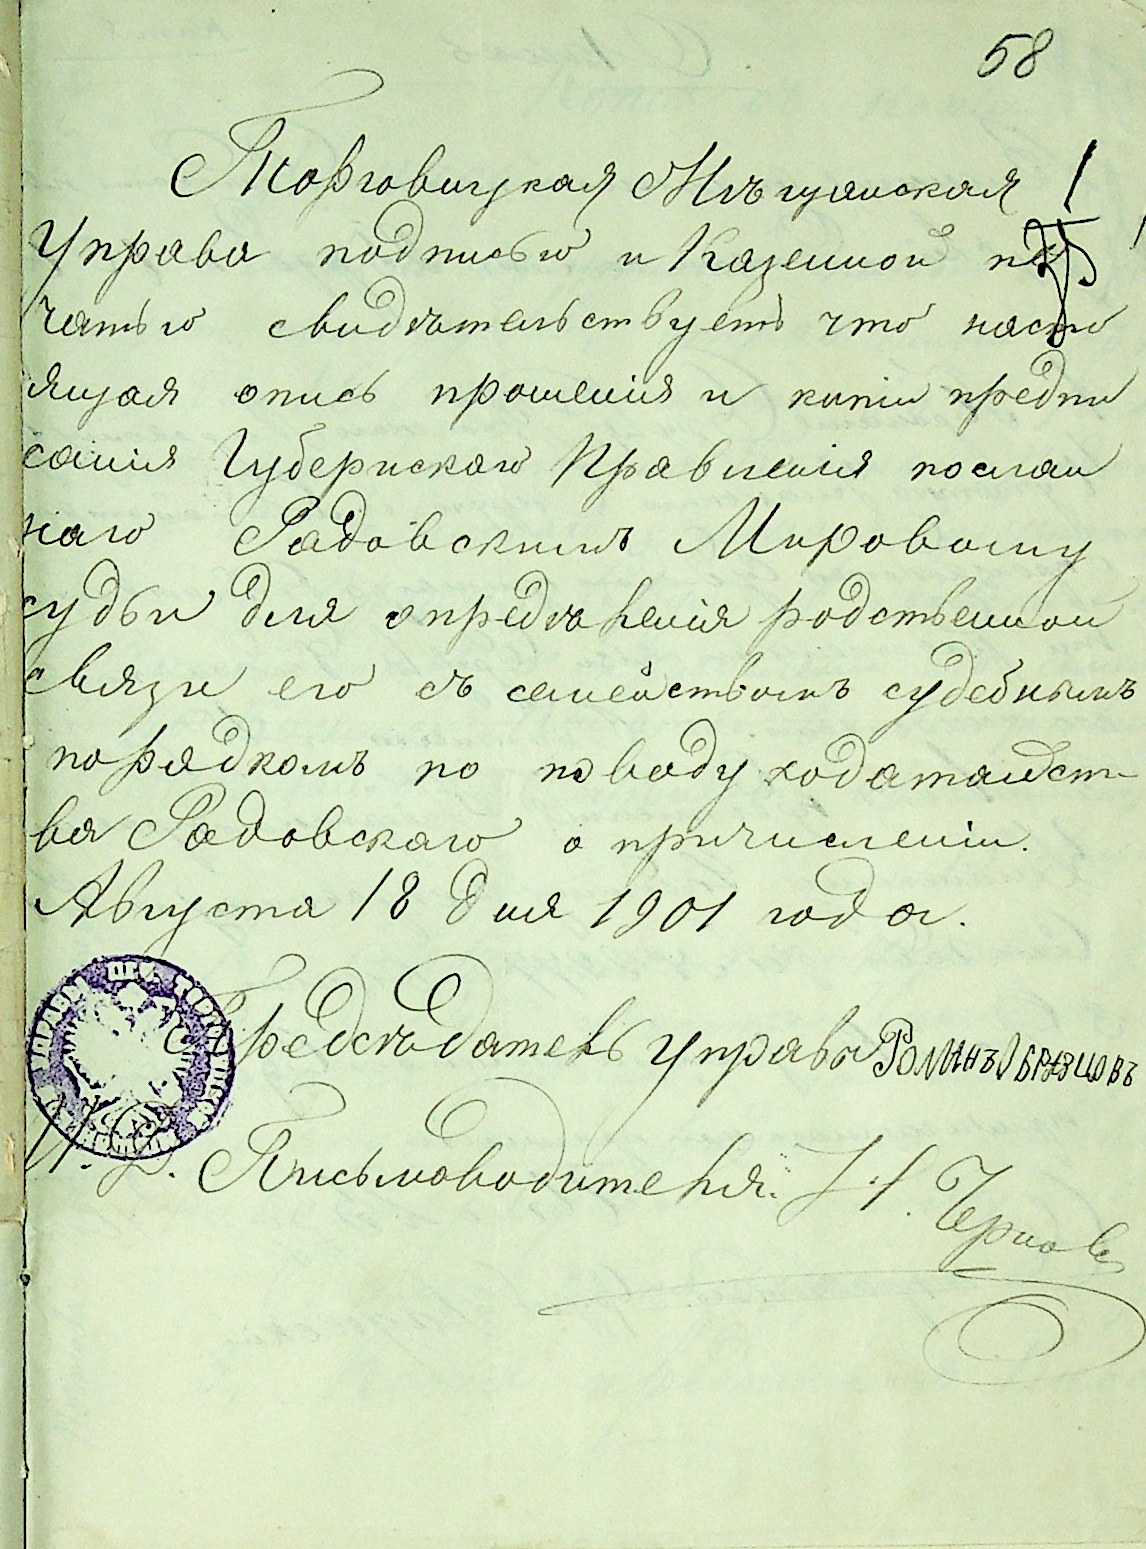 58
Торговицкая Мѣщанская
Управа подписью и Казенной пе
чатью свидѣтельствуетъ что насто
ящая опись прошенія и копіи предпи
санія Губернскаго Правленія послан
наго Радовскимъ Мировому
судьи для опредѣленія родственной
связи его съ семействомъ судебнымъ
порядкомъ по поводу ходатайст-
ва Радовскаго о причисленіи.
Августа 18 дня 1901 года.
Предсѣдатель Управы Романъ Образцовъ
И. д. Письмоводителя: Чернов